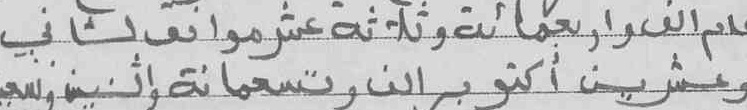 عام الف واربعمائة وثلاثة عشر موافق لثاني
وعشرين أكتوبر الف وتسعمائة واثنين وتسعين